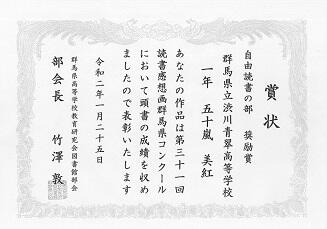 賞状
自由読書の部　奨励賞
群馬県立渋川青翠高等学校
一年　五十嵐　美紅
あなたの作品は第三十一回
読書感想画群馬県コンクール
において頭書の成績を収め
ましたので表彰いたします
令和二年一月二十五日
群馬県高等学校教育研究会図書館部会
部会長　竹澤　敦